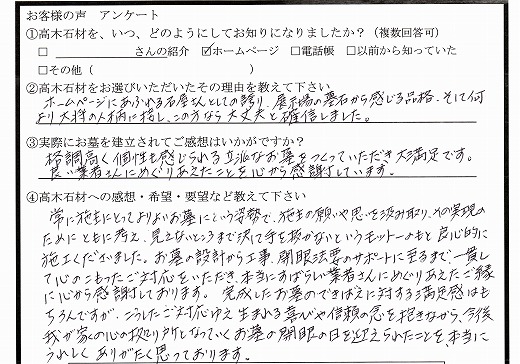 お客様の声　アンケート
①高木石材を、いつ、どのようにしてお知りになりましたか？（複数回答可）
□　　　　　　さんの紹介　☑ホームページ　□電話帳　□以前から知っていた
□その他（　　　　　　　　　　　）
②高木石材をお選びいただいたその理由を教えて下さい
ホームページにあふれる石屋さんとしての誇り、展示場の墓石から感じる品格、そして何
より大将の人柄に接し、この方なら大丈夫と確信しました。
③実際にお墓を建立されてご感想はいかがですか？
格調高く個性も感じられる立派なお墓をつくっていただき大満足です。
良い業者さんにめぐりあえたことを心から感謝しています。
④高木石材への感想・希望・要望など教えて下さい
常に施主にとってよりよいお墓にという姿勢で、施主の願いや思いを汲み取り、その実現の
ためにともに考え、見えないところまで決して手を抜かないというモットーのもと良心的に
施工くださいました。お墓の設計から工事、開眼法要のサポートに至るまで、一貫し
て心のこもったご対応をいただき、本当にすばらしい業者さんにめぐりあえたご縁
に心から感謝しております。完成したお墓のできばえに対する満足感はも
ちろんですが、こうしたご対応ゆえ生まれる喜びや信頼の念を抱きながら、今後
我が家の心の拠りどころとなっていくお墓の開眼の日を迎えられたことを、本当に
うれしくありがたく思っております。